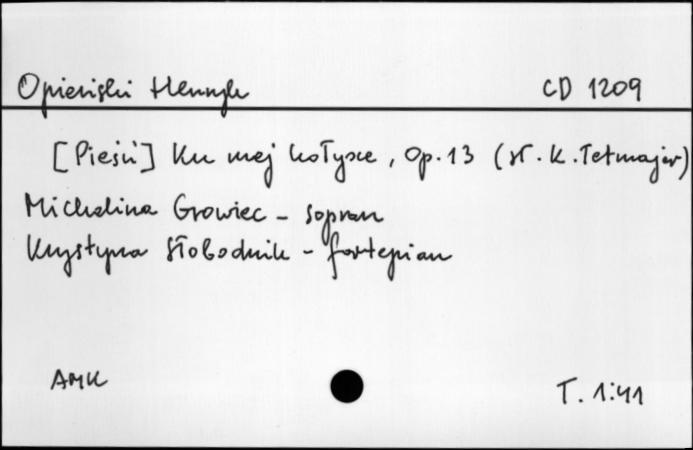 Opieński Henryk CD 1209
[Pieśń] Ku mej kołysce, Op. 13 (sł. K. Tetmajer)
Michalina Growiec - sopran
Krystyna Słobodnik - fortepian
AMK T. 1:41